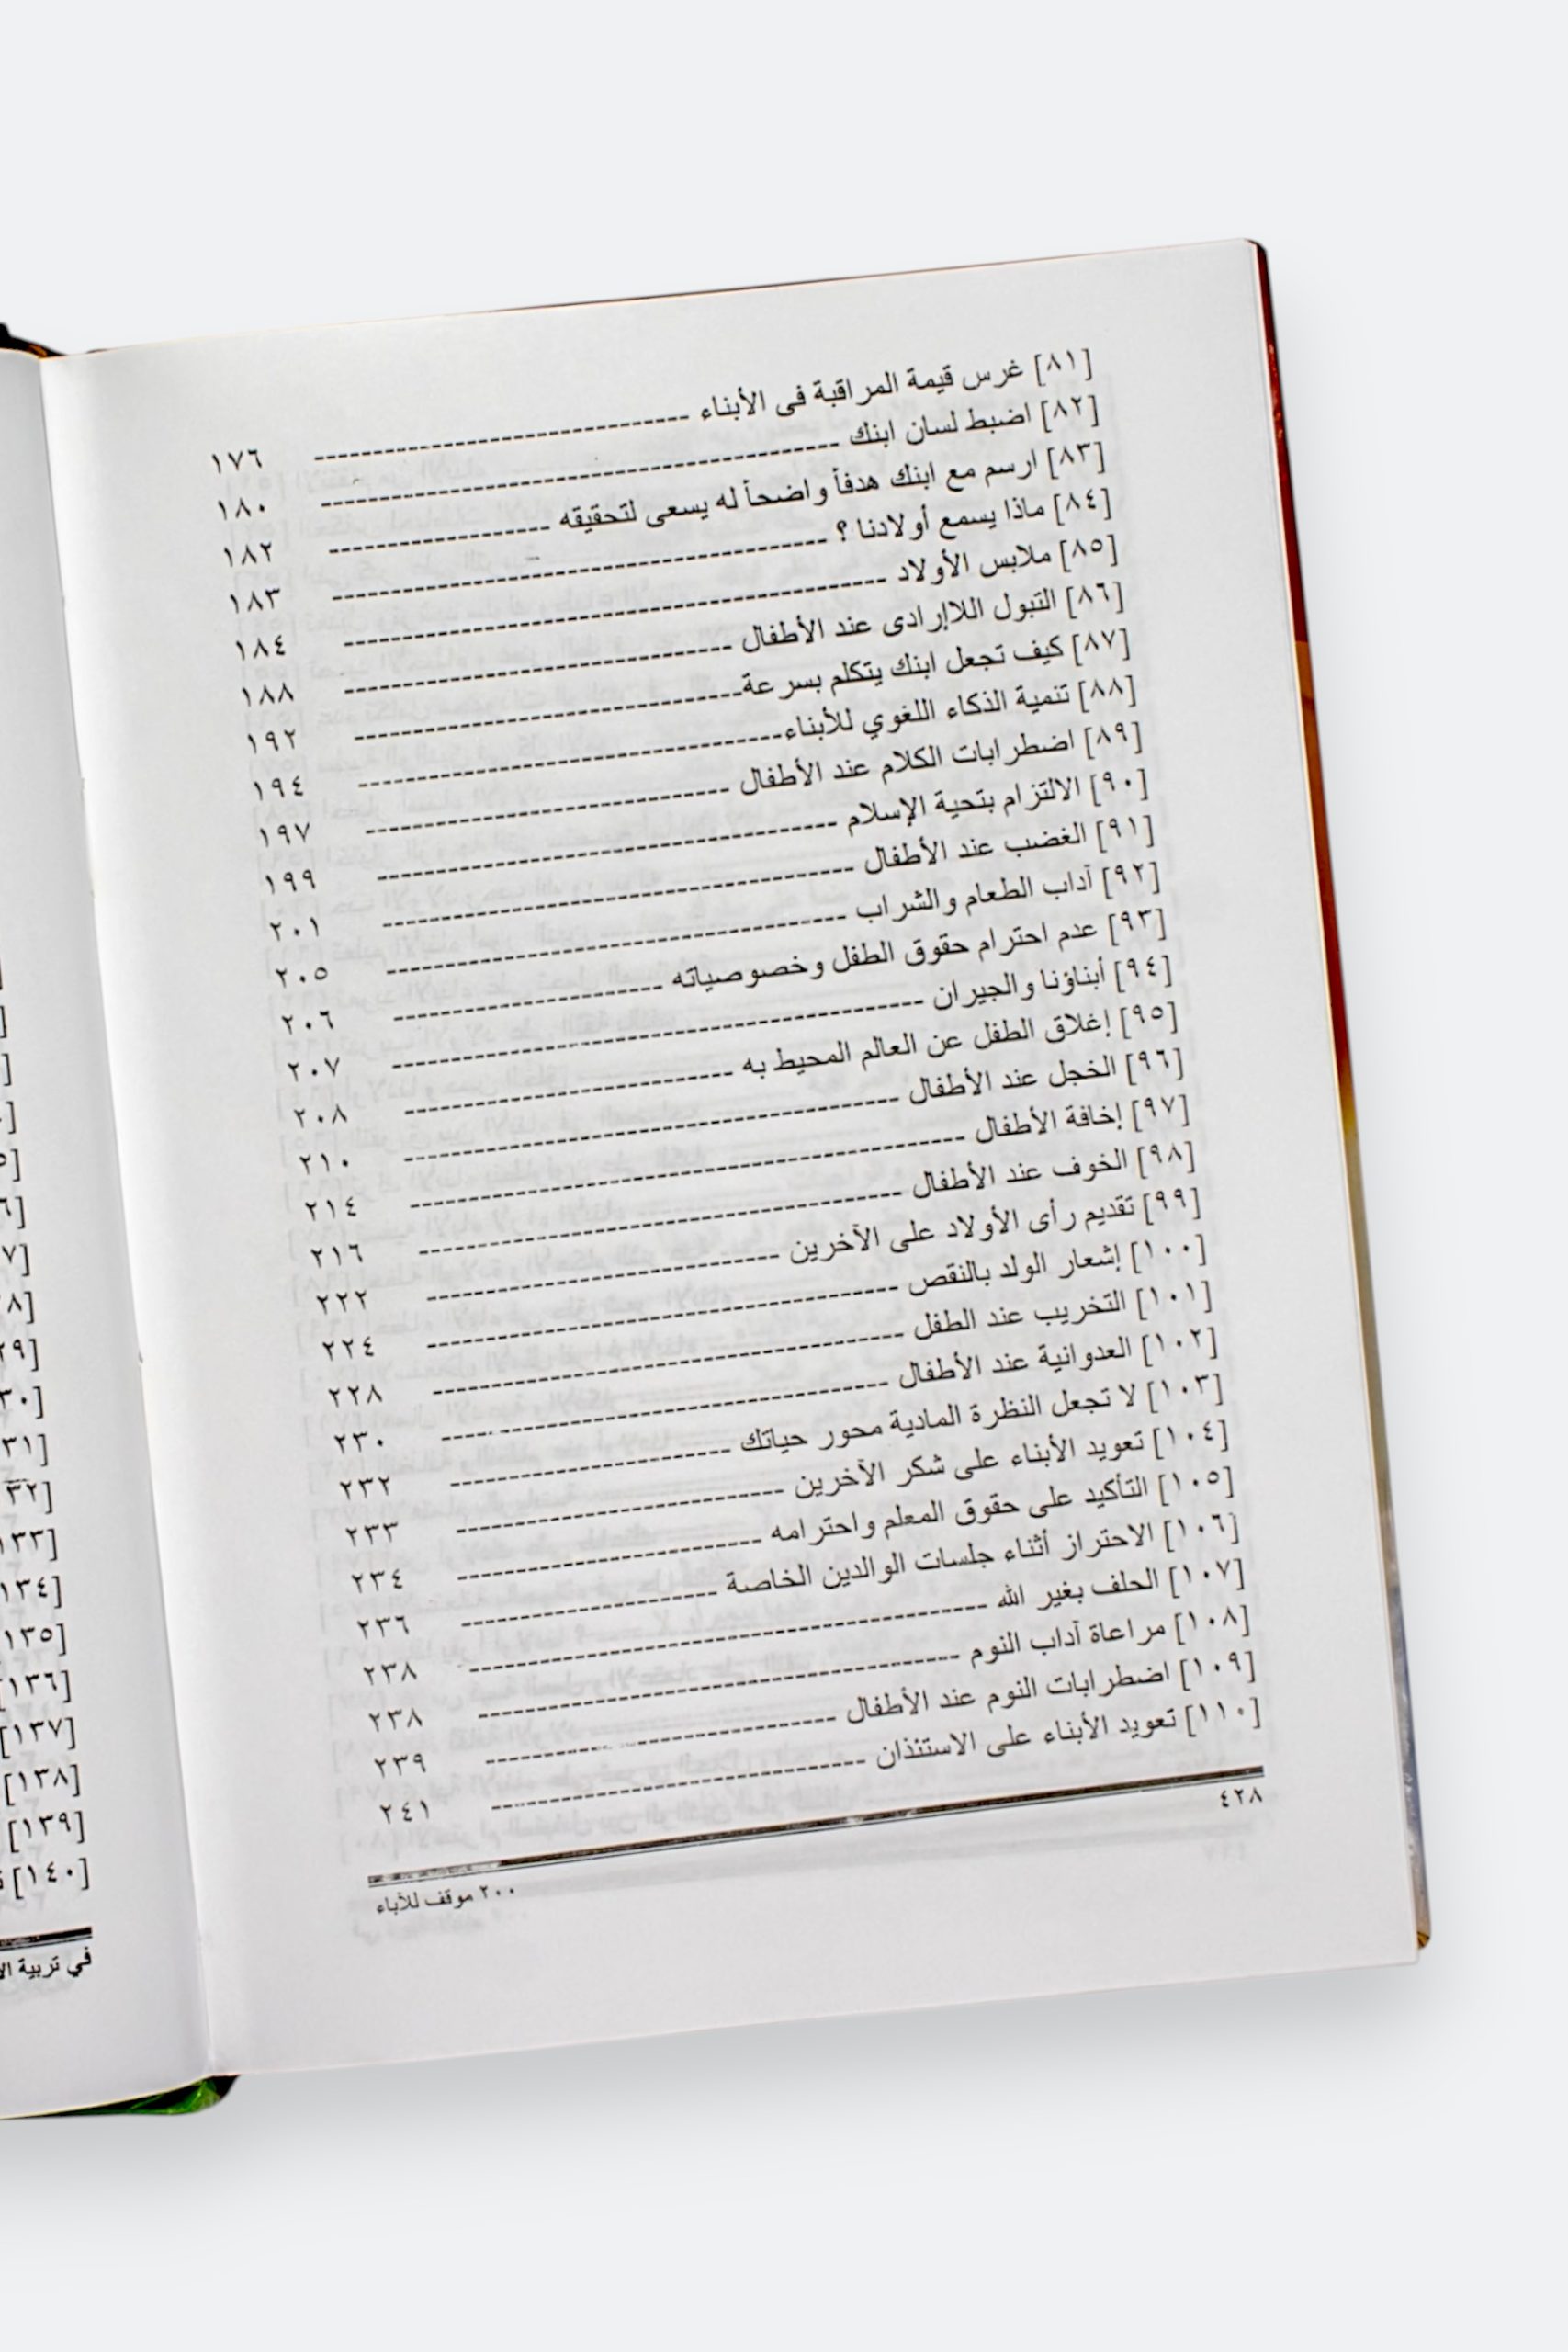 [٨١] غرس قيمة المراقبة فى الأبناء ١٧٦
[٨٢] اضبط لسان ابنك ١٨٠
[٨٣] ارسم مع ابنك هدفاً واضحاً له يسعى لتحقيقه ١٨٢
[٨٤] ماذا يسمع أولادنا ؟ ١٨٣
[٨٥] ملابس الأولاد ١٨٤
[٨٦] التبول اللاإرادى عند الأطفال ١٨٨
[٨٧] كيف تجعل ابنك يتكلم بسرعة ١٩٢
[٨٨] تنمية الذكاء اللغوي للأبناء ١٩٤
[٨٩] اضطرابات الكلام عند الأطفال ١٩٧
[٩٠] الالتزام بتحية الإسلام ١٩٩
[٩١] الغضب عند الأطفال ٢٠١
[٩٢] آداب الطعام والشراب ٢٠٥
[٩٣] عدم احترام حقوق الطفل وخصوصياته ٢٠٦
[٩٤] أبناؤنا والجيران ٢٠٧
[٩٥] إغلاق الطفل عن العالم المحيط به ٢٠٨
[٩٦] الخجل عند الأطفال ٢١٠
[٩٧] إخافة الأطفال ٢١٤
[٩٨] الخوف عند الأطفال ٢١٦
[٩٩] تقديم رأى الأولاد على الآخرين ٢٢٢
[١٠٠] إشعار الولد بالنقص ٢٢٤
[١٠١] التخريب عند الطفل ٢٢٨
[١٠٢] العدوانية عند الأطفال ٢٣٠
[١٠٣] لا تجعل النظرة المادية محور حياتك ٢٣٢
[١٠٤] تعويد الأبناء على شكر الآخرين ٢٣٣
[١٠٥] التأكيد على حقوق المعلم واحترامه ٢٣٤
[١٠٦] الاحتراز أثناء جلسات الوالدين الخاصة ٢٣٦
[١٠٧] الحلف بغير الله ٢٣٨
[١٠٨] مراعاة آداب النوم ٢٣٨
[١٠٩] اضطرابات النوم عند الأطفال ٢٣٩
[١١٠] تعويد الأبناء على الاستئذان ٢٤١
٤٢٨
٢٠٠ موقف للآباء
[١٣٤]
[١٣٥]
[١٣٦]
[١٣٧]
[١٣٨]
[١٣٩]
[١٤٠]
في تربية